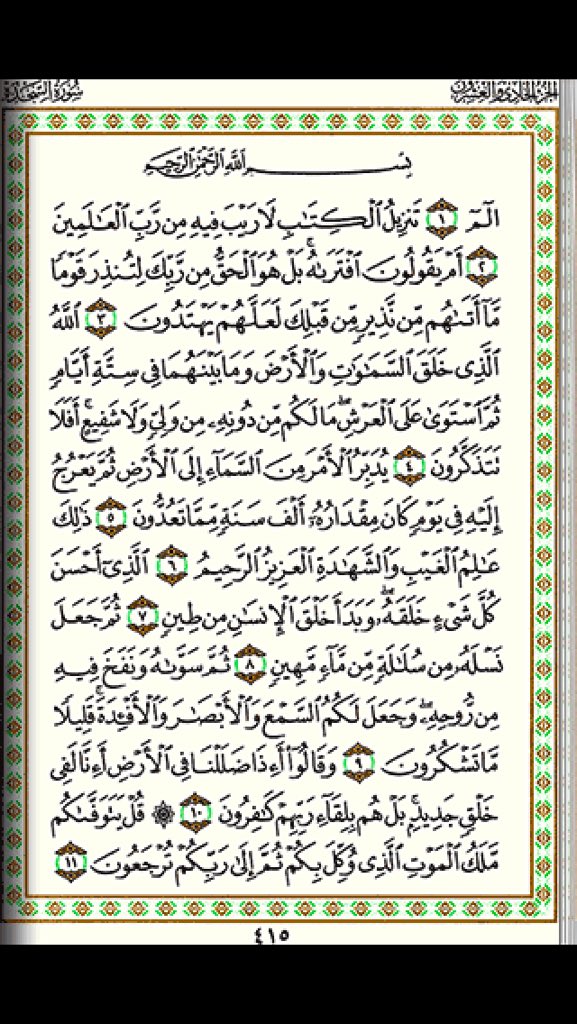 سُورَةُ السَّجْدَةِ
الجُزْءُ الحَادِي وَالعِشْرُونَ
بِسْمِ ٱللَّهِ ٱلرَّحْمَٰنِ ٱلرَّحِيمِ
الٓمٓ ١ تَنزِيلُ ٱلْكِتَٰبِ لَا رَيْبَ فِيهِ مِن رَّبِّ ٱلْعَٰلَمِينَ
٢ أَمْ يَقُولُونَ ٱفْتَرَىٰهُ ۚ بَلْ هُوَ ٱلْحَقُّ مِن رَّبِّكَ لِتُنذِرَ قَوْمًا
مَّآ أَتَىٰهُم مِّن نَّذِيرٍ مِّن قَبْلِكَ لَعَلَّهُمْ يَهْتَدُونَ ٣ ٱللَّهُ
ٱلَّذِى خَلَقَ ٱلسَّمَٰوَٰتِ وَٱلْأَرْضَ وَمَا بَيْنَهُمَا فِى سِتَّةِ أَيَّامٍ
ثُمَّ ٱسْتَوَىٰ عَلَى ٱلْعَرْشِ ۖ مَا لَكُم مِّن دُونِهِۦ مِن وَلِىٍّ وَلَا شَفِيعٍ ۚ أَفَلَا
تَتَذَكَّرُونَ ٤ يُدَبِّرُ ٱلْأَمْرَ مِنَ ٱلسَّمَآءِ إِلَى ٱلْأَرْضِ ثُمَّ يَعْرُجُ
إِلَيْهِ فِى يَوْمٍ كَانَ مِقْدَارُهُۥٓ أَلْفَ سَنَةٍ مِّمَّا تَعُدُّونَ ٥ ذَٰلِكَ
عَٰلِمُ ٱلْغَيْبِ وَٱلشَّهَٰدَةِ ٱلْعَزِيزُ ٱلرَّحِيمُ ٦ ٱلَّذِىٓ أَحْسَنَ
كُلَّ شَىْءٍ خَلَقَهُۥ ۖ وَبَدَأَ خَلْقَ ٱلْإِنسَٰنِ مِن طِينٍ ٧ ثُمَّ جَعَلَ
نَسْلَهُۥ مِن سُلَٰلَةٍ مِّن مَّآءٍ مَّهِينٍ ٨ ثُمَّ سَوَّىٰهُ وَنَفَخَ فِيهِ
مِن رُّوحِهِۦ ۖ وَجَعَلَ لَكُمُ ٱلسَّمْعَ وَٱلْأَبْصَٰرَ وَٱلْأَفْـِٔدَةَ ۚ قَلِيلًا
مَّا تَشْكُرُونَ ٩ وَقَالُوٓا۟ أَءِذَا ضَلَلْنَا فِى ٱلْأَرْضِ أَءِنَّا لَفِى
خَلْقٍ جَدِيدٍۭ ۚ بَلْ هُم بِلِقَآءِ رَبِّهِمْ كَٰفِرُونَ ١٠ ۞ قُلْ يَتَوَفَّىٰكُم
مَّلَكُ ٱلْمَوْتِ ٱلَّذِى وُكِّلَ بِكُمْ ثُمَّ إِلَىٰ رَبِّكُمْ تُرْجَعُونَ ١١
٤١٥